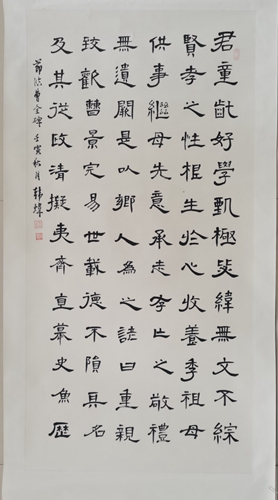 君童齔好學甄極毖緯無文不綜
賢孝之性根生於心收養季祖母
供事繼母先意承志存亡之敬禮
無遺闕是以鄉人為之諺曰重親
致歡曹景完易世載德不隕其名
及其從政清擬夷齊直慕史魚歷
節臨曹全碑壬寅秋月韓